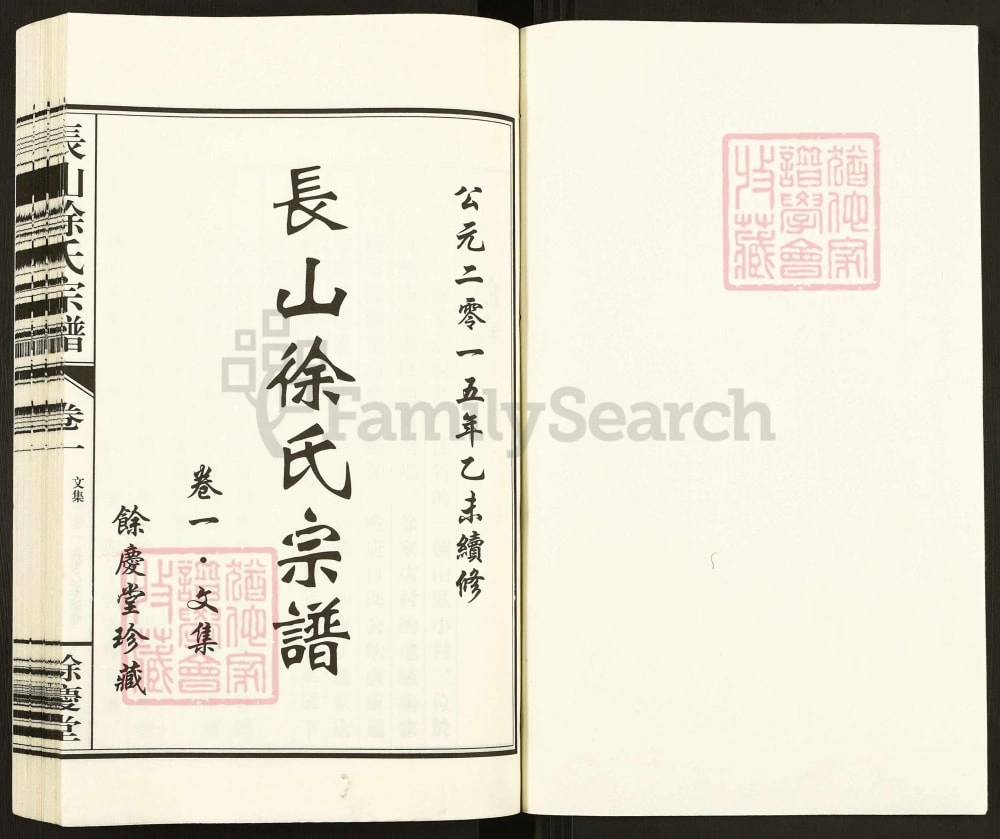 猶他家
譜學會
收藏
公元二零一五年乙未續修
長山徐氏宗譜
卷一·文集
餘慶堂珍藏
猶他家
譜學會
收藏
長山徐氏宗譜
卷一
文集
餘慶堂
FamilySearch